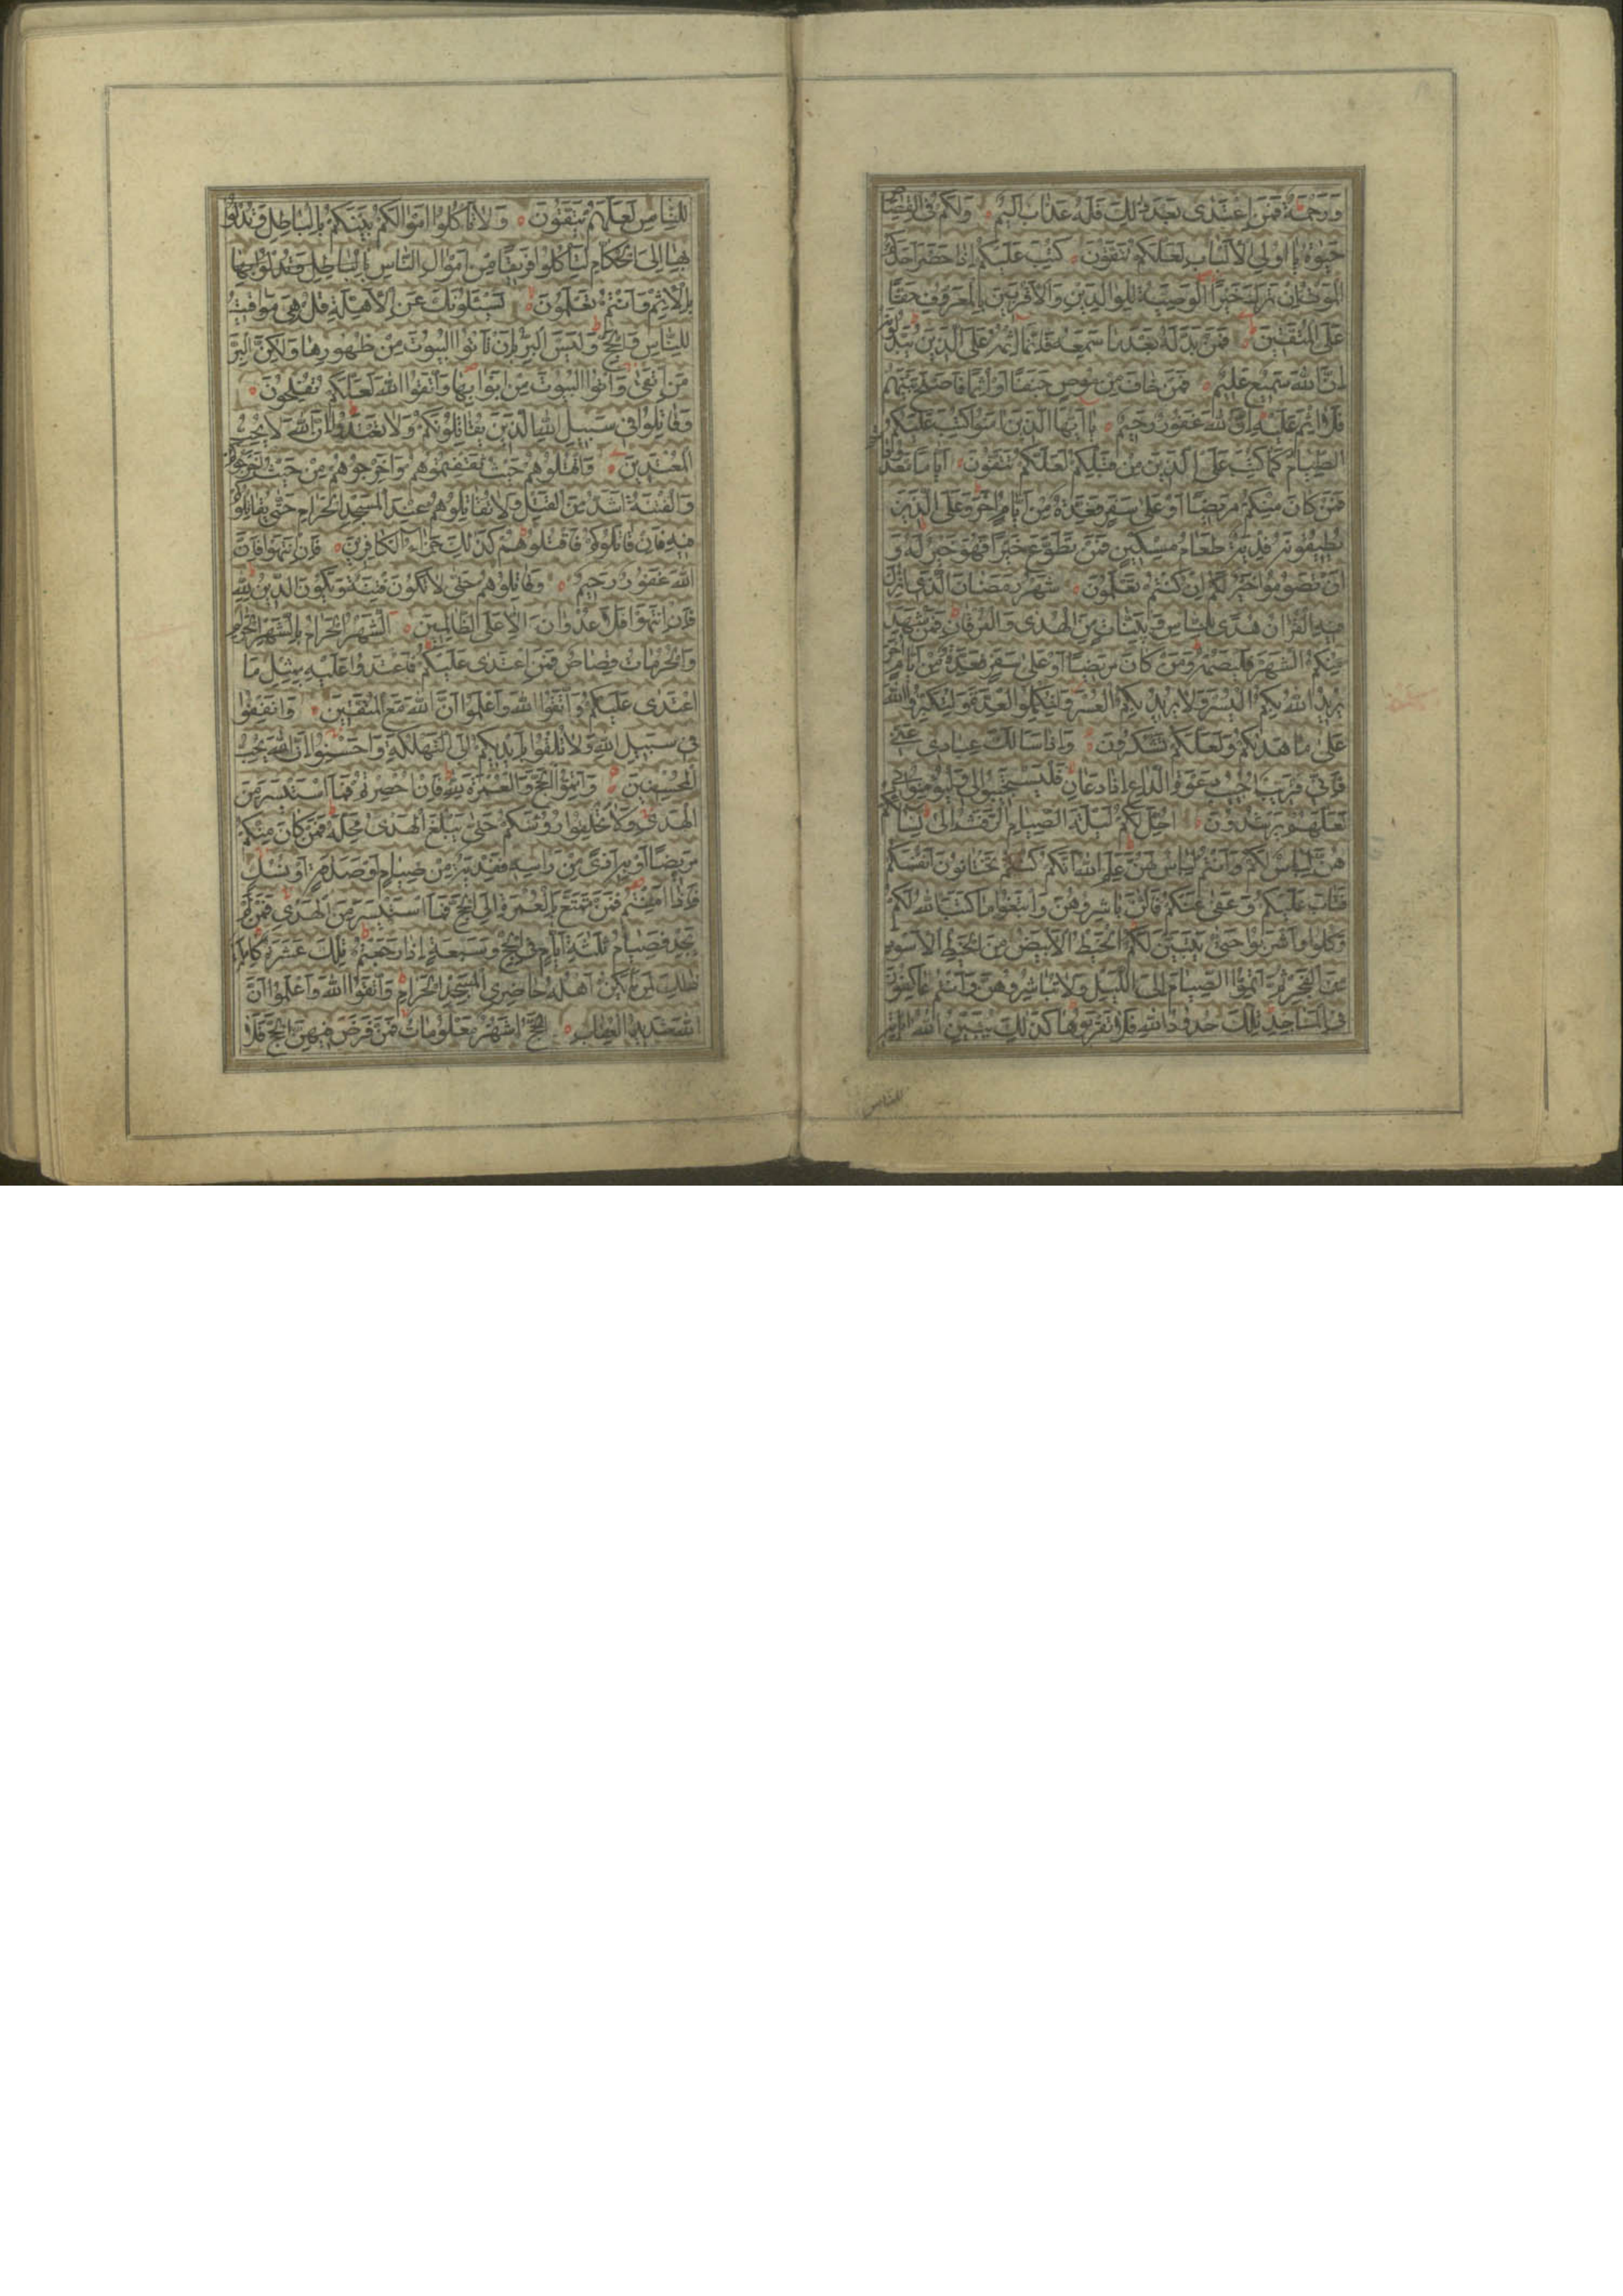 وَرَحْمَةٌ فَمَنِ اعْتَدٰى بَعْدَ ذٰلِكَ فَلَهُ عَذَابٌ اَلِيمٌ وَلَكُمْ فِى الْقِصَاصِ
حَيٰوةٌ يَا اُولِي الْاَلْبَابِ لَعَلَّكُمْ تَتَّقُونَ كُتِبَ عَلَيْكُمْ اِذَا حَضَرَ اَحَدَكُمُ
الْمَوْتُ اِنْ تَرَكَ خَيْرًا الْوَصِيَّةُ لِلْوَالِدَيْنِ وَالْاَقْرَبِينَ بِالْمَعْرُوفِ حَقًّا
عَلَى الْمُتَّقِينَ فَمَنْ بَدَّلَهُ بَعْدَ مَا سَمِعَهُ فَاِنَّمَا اِثْمُهُ عَلَى الَّذِينَ يُبَدِّلُونَهُ
اِنَّ اللّٰهَ سَمِيعٌ عَلِيمٌ فَمَنْ خَافَ مِنْ مُوصٍ جَنَفًا اَوْ اِثْمًا فَاَصْلَحَ بَيْنَهُمْ
فَلَا اِثْمَ عَلَيْهِ اِنَّ اللّٰهَ غَفُورٌ رَحِيمٌ يَا اَيُّهَا الَّذِينَ اٰمَنُوا كُتِبَ عَلَيْكُمُ
الصِّيَامُ كَمَا كُتِبَ عَلَى الَّذِينَ مِنْ قَبْلِكُمْ لَعَلَّكُمْ تَتَّقُونَ اَيَّامًا مَعْدُودَاتٍ
فَمَنْ كَانَ مِنْكُمْ مَرِيضًا اَوْ عَلٰى سَفَرٍ فَعِدَّةٌ مِنْ اَيَّامٍ اُخَرَ وَعَلَى الَّذِينَ
يُطِيقُونَهُ فِدْيَةٌ طَعَامُ مِسْكِينٍ فَمَنْ تَطَوَّعَ خَيْرًا فَهُوَ خَيْرٌ لَهُ وَ
اَنْ تَصُومُوا خَيْرٌ لَكُمْ اِنْ كُنْتُمْ تَعْلَمُونَ شَهْرُ رَمَضَانَ الَّذِى اُنْزِلَ
فِيهِ الْقُرْاٰنُ هُدًى لِلنَّاسِ وَبَيِّنَاتٍ مِنَ الْهُدٰى وَالْفُرْقَانِ فَمَنْ شَهِدَ
مِنْكُمُ الشَّهْرَ فَلْيَصُمْهُ وَمَنْ كَانَ مَرِيضًا اَوْ عَلٰى سَفَرٍ فَعِدَّةٌ مِنْ اَيَّامٍ اُخَرَ
يُرِيدُ اللّٰهُ بِكُمُ الْيُسْرَ وَلَا يُرِيدُ بِكُمُ الْعُسْرَ وَلِتُكْمِلُوا الْعِدَّةَ وَلِتُكَبِّرُوا اللّٰهَ
عَلٰى مَا هَدٰيكُمْ وَلَعَلَّكُمْ تَشْكُرُونَ وَاِذَا سَاَلَكَ عِبَادِى عَنِّى
فَاِنِّى قَرِيبٌ اُجِيبُ دَعْوَةَ الدَّاعِ اِذَا دَعَانِ فَلْيَسْتَجِيبُوا لِى وَلْيُؤْمِنُوا بِى
لَعَلَّهُمْ يَرْشُدُونَ اُحِلَّ لَكُمْ لَيْلَةَ الصِّيَامِ الرَّفَثُ اِلٰى نِسَائِكُمْ
هُنَّ لِبَاسٌ لَكُمْ وَاَنْتُمْ لِبَاسٌ لَهُنَّ عَلِمَ اللّٰهُ اَنَّكُمْ كُنْتُمْ تَخْتَانُونَ اَنْفُسَكُمْ
فَتَابَ عَلَيْكُمْ وَعَفٰى عَنْكُمْ فَالْاٰنَ بَاشِرُوهُنَّ وَابْتَغُوا مَا كَتَبَ اللّٰهُ لَكُمْ
وَكُلُوا وَاشْرَبُوا حَتّٰى يَتَبَيَّنَ لَكُمُ الْخَيْطُ الْاَبْيَضُ مِنَ الْخَيْطِ الْاَسْوَدِ
مِنَ الْفَجْرِ ثُمَّ اَتِمُّوا الصِّيَامَ اِلَى اللَّيْلِ وَلَا تُبَاشِرُوهُنَّ وَاَنْتُمْ عَاكِفُونَ
فِى الْمَسَاجِدِ تِلْكَ حُدُودُ اللّٰهِ فَلَا تَقْرَبُوهَا كَذٰلِكَ يُبَيِّنُ اللّٰهُ اٰيَاتِهِ
للناس
لِلنَّاسِ لَعَلَّهُمْ يَتَّقُونَ وَلَا تَاْكُلُوا اَمْوَالَكُمْ بَيْنَكُمْ بِالْبَاطِلِ وَتُدْلُوا
بِهَا اِلَى الْحُكَّامِ لِتَاْكُلُوا فَرِيقًا مِنْ اَمْوَالِ النَّاسِ بِالْبَاطِلِ وَتُدْلُوا بِهَا
بِالْاِثْمِ وَاَنْتُمْ تَعْلَمُونَ يَسْئَلُونَكَ عَنِ الْاَهِلَّةِ قُلْ هِىَ مَوَاقِيتُ
لِلنَّاسِ وَالْحَجِّ وَلَيْسَ الْبِرُّ بِاَنْ تَاْتُوا الْبُيُوتَ مِنْ ظُهُورِهَا وَلٰكِنَّ الْبِرَّ
مَنِ اتَّقٰى وَاْتُوا الْبُيُوتَ مِنْ اَبْوَابِهَا وَاتَّقُوا اللّٰهَ لَعَلَّكُمْ تُفْلِحُونَ
وَقَاتِلُوا فِى سَبِيلِ اللّٰهِ الَّذِينَ يُقَاتِلُونَكُمْ وَلَا تَعْتَدُوا اِنَّ اللّٰهَ لَا يُحِبُّ
الْمُعْتَدِينَ وَاقْتُلُوهُمْ حَيْثُ ثَقِفْتُمُوهُمْ وَاَخْرِجُوهُمْ مِنْ حَيْثُ اَخْرَجُوكُمْ
وَالْفِتْنَةُ اَشَدُّ مِنَ الْقَتْلِ وَلَا تُقَاتِلُوهُمْ عِنْدَ الْمَسْجِدِ الْحَرَامِ حَتّٰى يُقَاتِلُوكُمْ
فِيهِ فَاِنْ قَاتَلُوكُمْ فَاقْتُلُوهُمْ كَذٰلِكَ جَزَاءُ الْكَافِرِينَ فَاِنِ انْتَهَوْا فَاِنَّ
اللّٰهَ غَفُورٌ رَحِيمٌ وَقَاتِلُوهُمْ حَتّٰى لَا تَكُونَ فِتْنَةٌ وَيَكُونَ الدِّينُ لِلّٰهِ
فَاِنِ انْتَهَوْا فَلَا عُدْوَانَ اِلَّا عَلَى الظَّالِمِينَ اَلشَّهْرُ الْحَرَامُ بِالشَّهْرِ الْحَرَامِ
وَالْحُرُمَاتُ قِصَاصٌ فَمَنِ اعْتَدٰى عَلَيْكُمْ فَاعْتَدُوا عَلَيْهِ بِمِثْلِ مَا
اعْتَدٰى عَلَيْكُمْ وَاتَّقُوا اللّٰهَ وَاعْلَمُوا اَنَّ اللّٰهَ مَعَ الْمُتَّقِينَ وَاَنْفِقُوا
فِى سَبِيلِ اللّٰهِ وَلَا تُلْقُوا بِاَيْدِيكُمْ اِلَى التَّهْلُكَةِ وَاَحْسِنُوا اِنَّ اللّٰهَ يُحِبُّ
الْمُحْسِنِينَ وَاَتِمُّوا الْحَجَّ وَالْعُمْرَةَ لِلّٰهِ فَاِنْ اُحْصِرْتُمْ فَمَا اسْتَيْسَرَ مِنَ
الْهَدْىِ وَلَا تَحْلِقُوا رُؤُسَكُمْ حَتّٰى يَبْلُغَ الْهَدْىُ مَحِلَّهُ فَمَنْ كَانَ مِنْكُمْ
مَرِيضًا اَوْ بِهِ اَذًى مِنْ رَاْسِهِ فَفِدْيَةٌ مِنْ صِيَامٍ اَوْ صَدَقَةٍ اَوْ نُسُكٍ
فَاِذَا اَمِنْتُمْ فَمَنْ تَمَتَّعَ بِالْعُمْرَةِ اِلَى الْحَجِّ فَمَا اسْتَيْسَرَ مِنَ الْهَدْىِ فَمَنْ لَمْ
يَجِدْ فَصِيَامُ ثَلٰثَةِ اَيَّامٍ فِى الْحَجِّ وَسَبْعَةٍ اِذَا رَجَعْتُمْ تِلْكَ عَشَرَةٌ كَامِلَةٌ
ذٰلِكَ لِمَنْ لَمْ يَكُنْ اَهْلُهُ حَاضِرِى الْمَسْجِدِ الْحَرَامِ وَاتَّقُوا اللّٰهَ وَاعْلَمُوا اَنَّ
اللّٰهَ شَدِيدُ الْعِقَابِ اَلْحَجُّ اَشْهُرٌ مَعْلُومَاتٌ فَمَنْ فَرَضَ فِيهِنَّ الْحَجَّ فَلَا